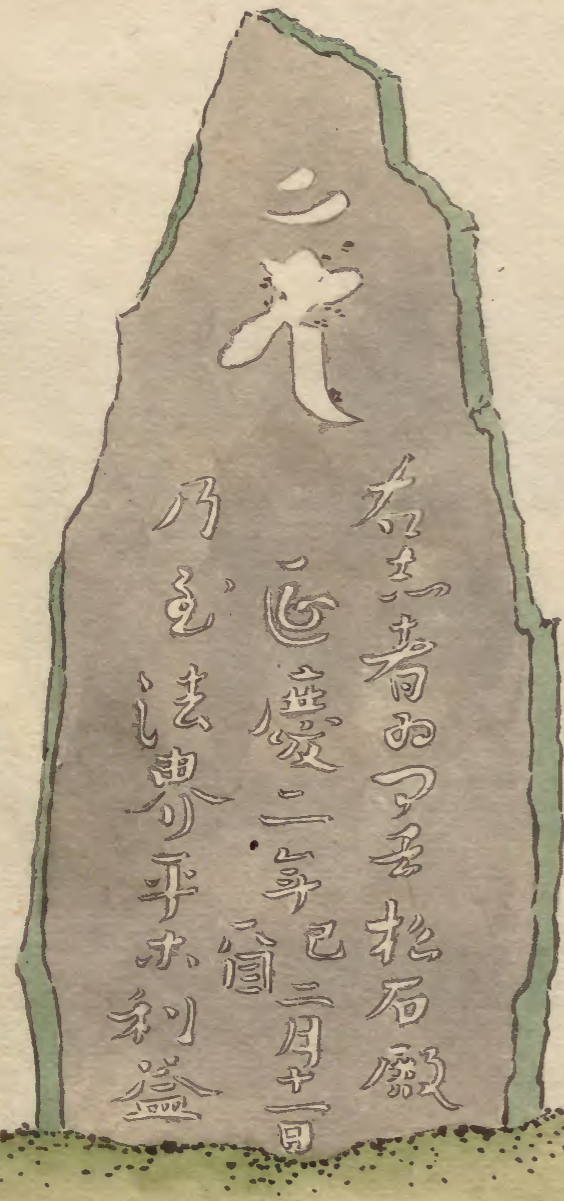 右志者為松石殿
延慶二年己酉二月十一日
乃至法界平等利益